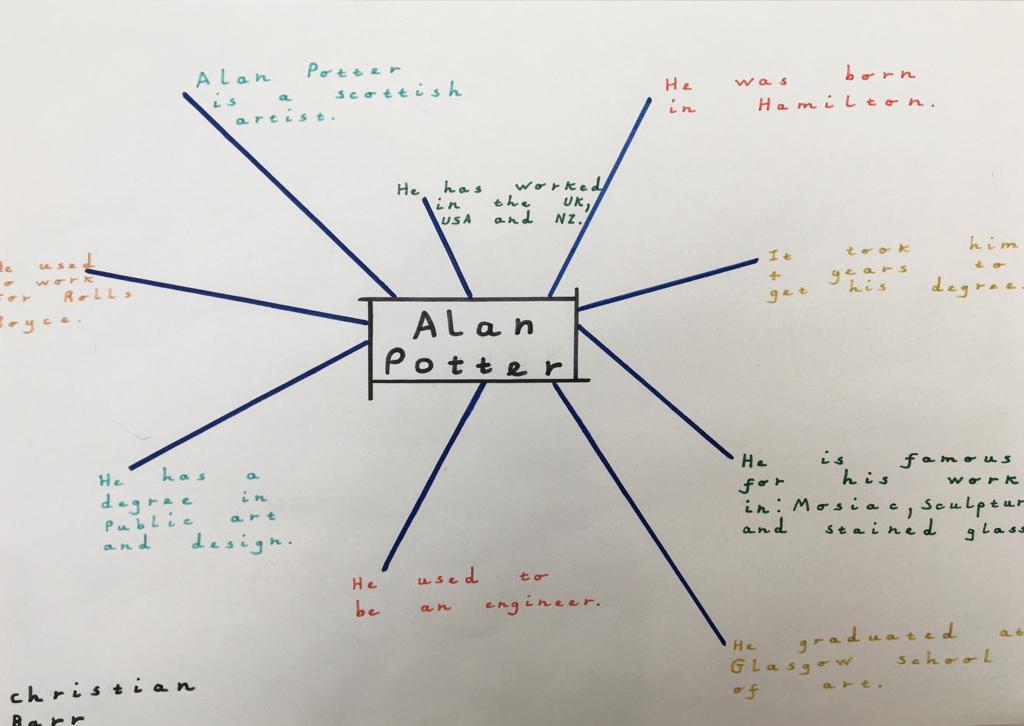 Alan Potter
is a scottish
artist.
He was born
in Hamilton.
He has worked
in the UK,
USA and NZ.
It took him
4 years to
get his degree.
He used
to work
for Rolls
Royce.
Alan
Potter
He is famous
for his work
in: Mosiac, Sculptur
and stained glass
He has a
degree in
Public art
and design.
He used to
be an engineer.
He graduated at
Glasgow school
of art.
christian
Barr